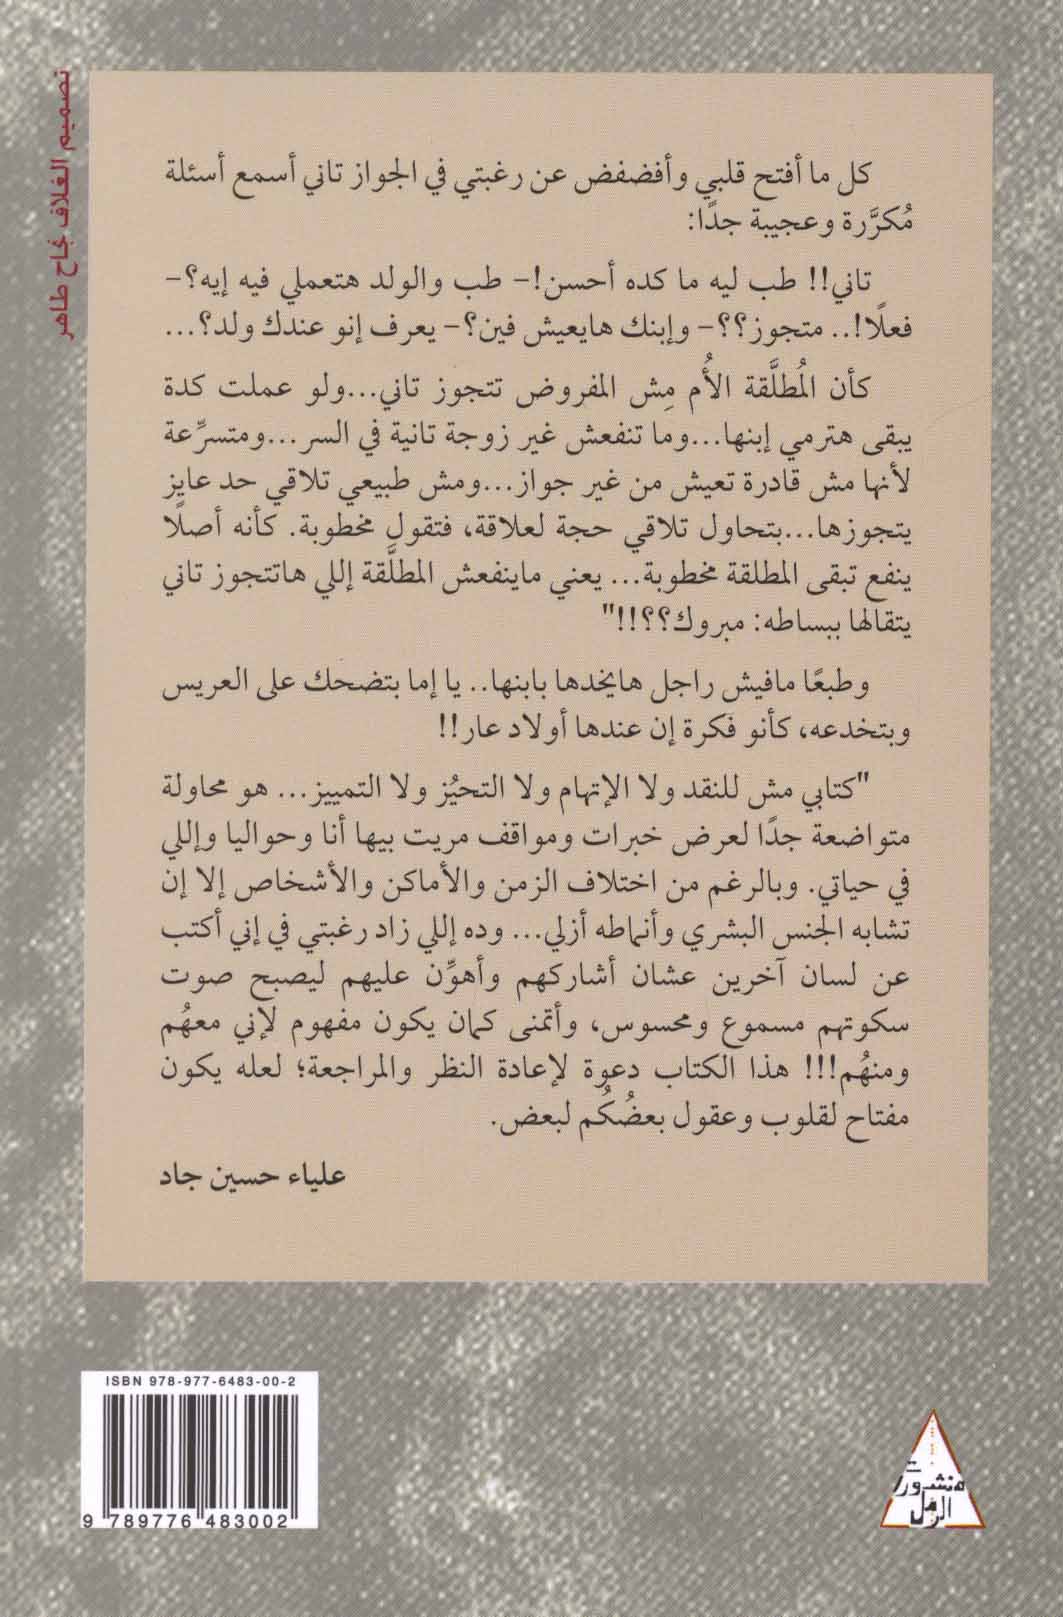 تصميم الغلاف نجاح طاهر
كل ما أفتح قلبي وأفضفض عن رغبتي في الجواز تاني أسمع أسئلة
مُكرَّرة وعجيبة جدًا:
تاني!! طب ليه ما كده أحسن!- طب والولد هتعملي فيه إيه؟-
فعلًا!.. متجوز؟؟- وإبنك هايعيش فين؟- يعرف إنو عندك ولد؟...
كأن المُطلَّقة الأُم مِش المفروض تتجوز تاني...ولو عملت كدة
يبقى هترمي إبنها...وما تنفعش غير زوجة تانية في السر...ومتسرِّعة
لأنها مش قادرة تعيش من غير جواز...ومش طبيعي تلاقي حد عايز
يتجوزها...بتحاول تلاقي حجة لعلاقة، فتقول مخطوبة. كأنه أصلًا
ينفع تبقى المطلقة مخطوبة... يعني ماينفعش المطلَّقة إللي هاتتجوز تاني
يتقالها ببساطه: مبروك؟؟!!"
وطبعًا مافيش راجل هايخدها بابنها.. يا إما بتضحك على العريس
وبتخدعه، كأنو فكرة إن عندها أولاد عار!!
"كتابي مش للنقد ولا الإتهام ولا التحيُز ولا التمييز... هو محاولة
متواضعة جدًا لعرض خبرات ومواقف مريت بيها أنا وحواليا وإللي
في حياتي. وبالرغم من اختلاف الزمن والأماكن والأشخاص إلا إن
تشابه الجنس البشري وأنماطه أزلي... وده إللي زاد رغبتي في إني أكتب
عن لسان آخرين عشان أشاركهم وأهوِّن عليهم ليصبح صوت
سكوتهم مسموع ومحسوس، وأتمنى كمان يكون مفهوم لإني معهُم
ومنهُم!!! هذا الكتاب دعوة لإعادة النظر والمراجعة؛ لعله يكون
مفتاح لقلوب وعقول بعضُكُم لبعض.
علياء حسين جاد
ISBN 978-977-6483-00-2
9 789776 483002
منشورات
الرمل